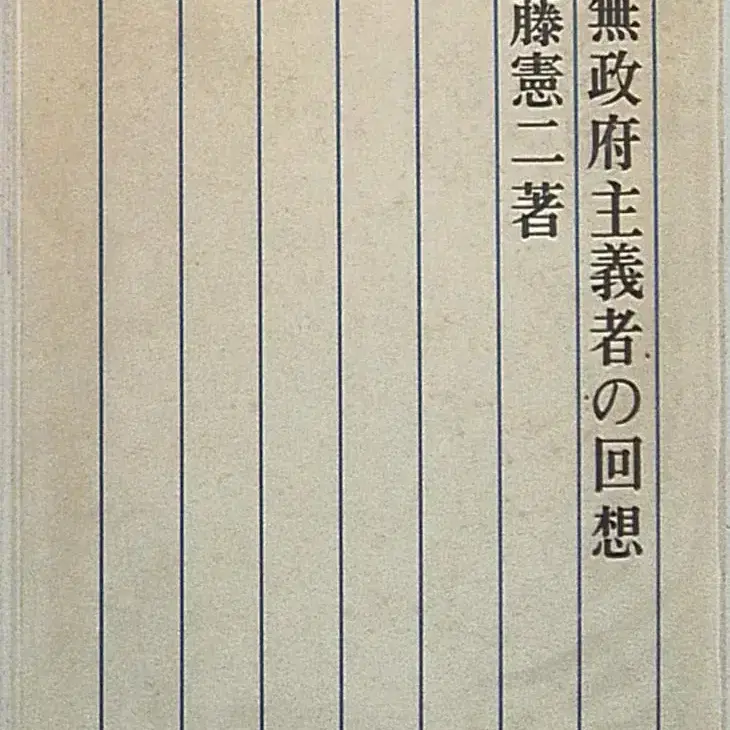 無政府主義者の回想
藤憲二著